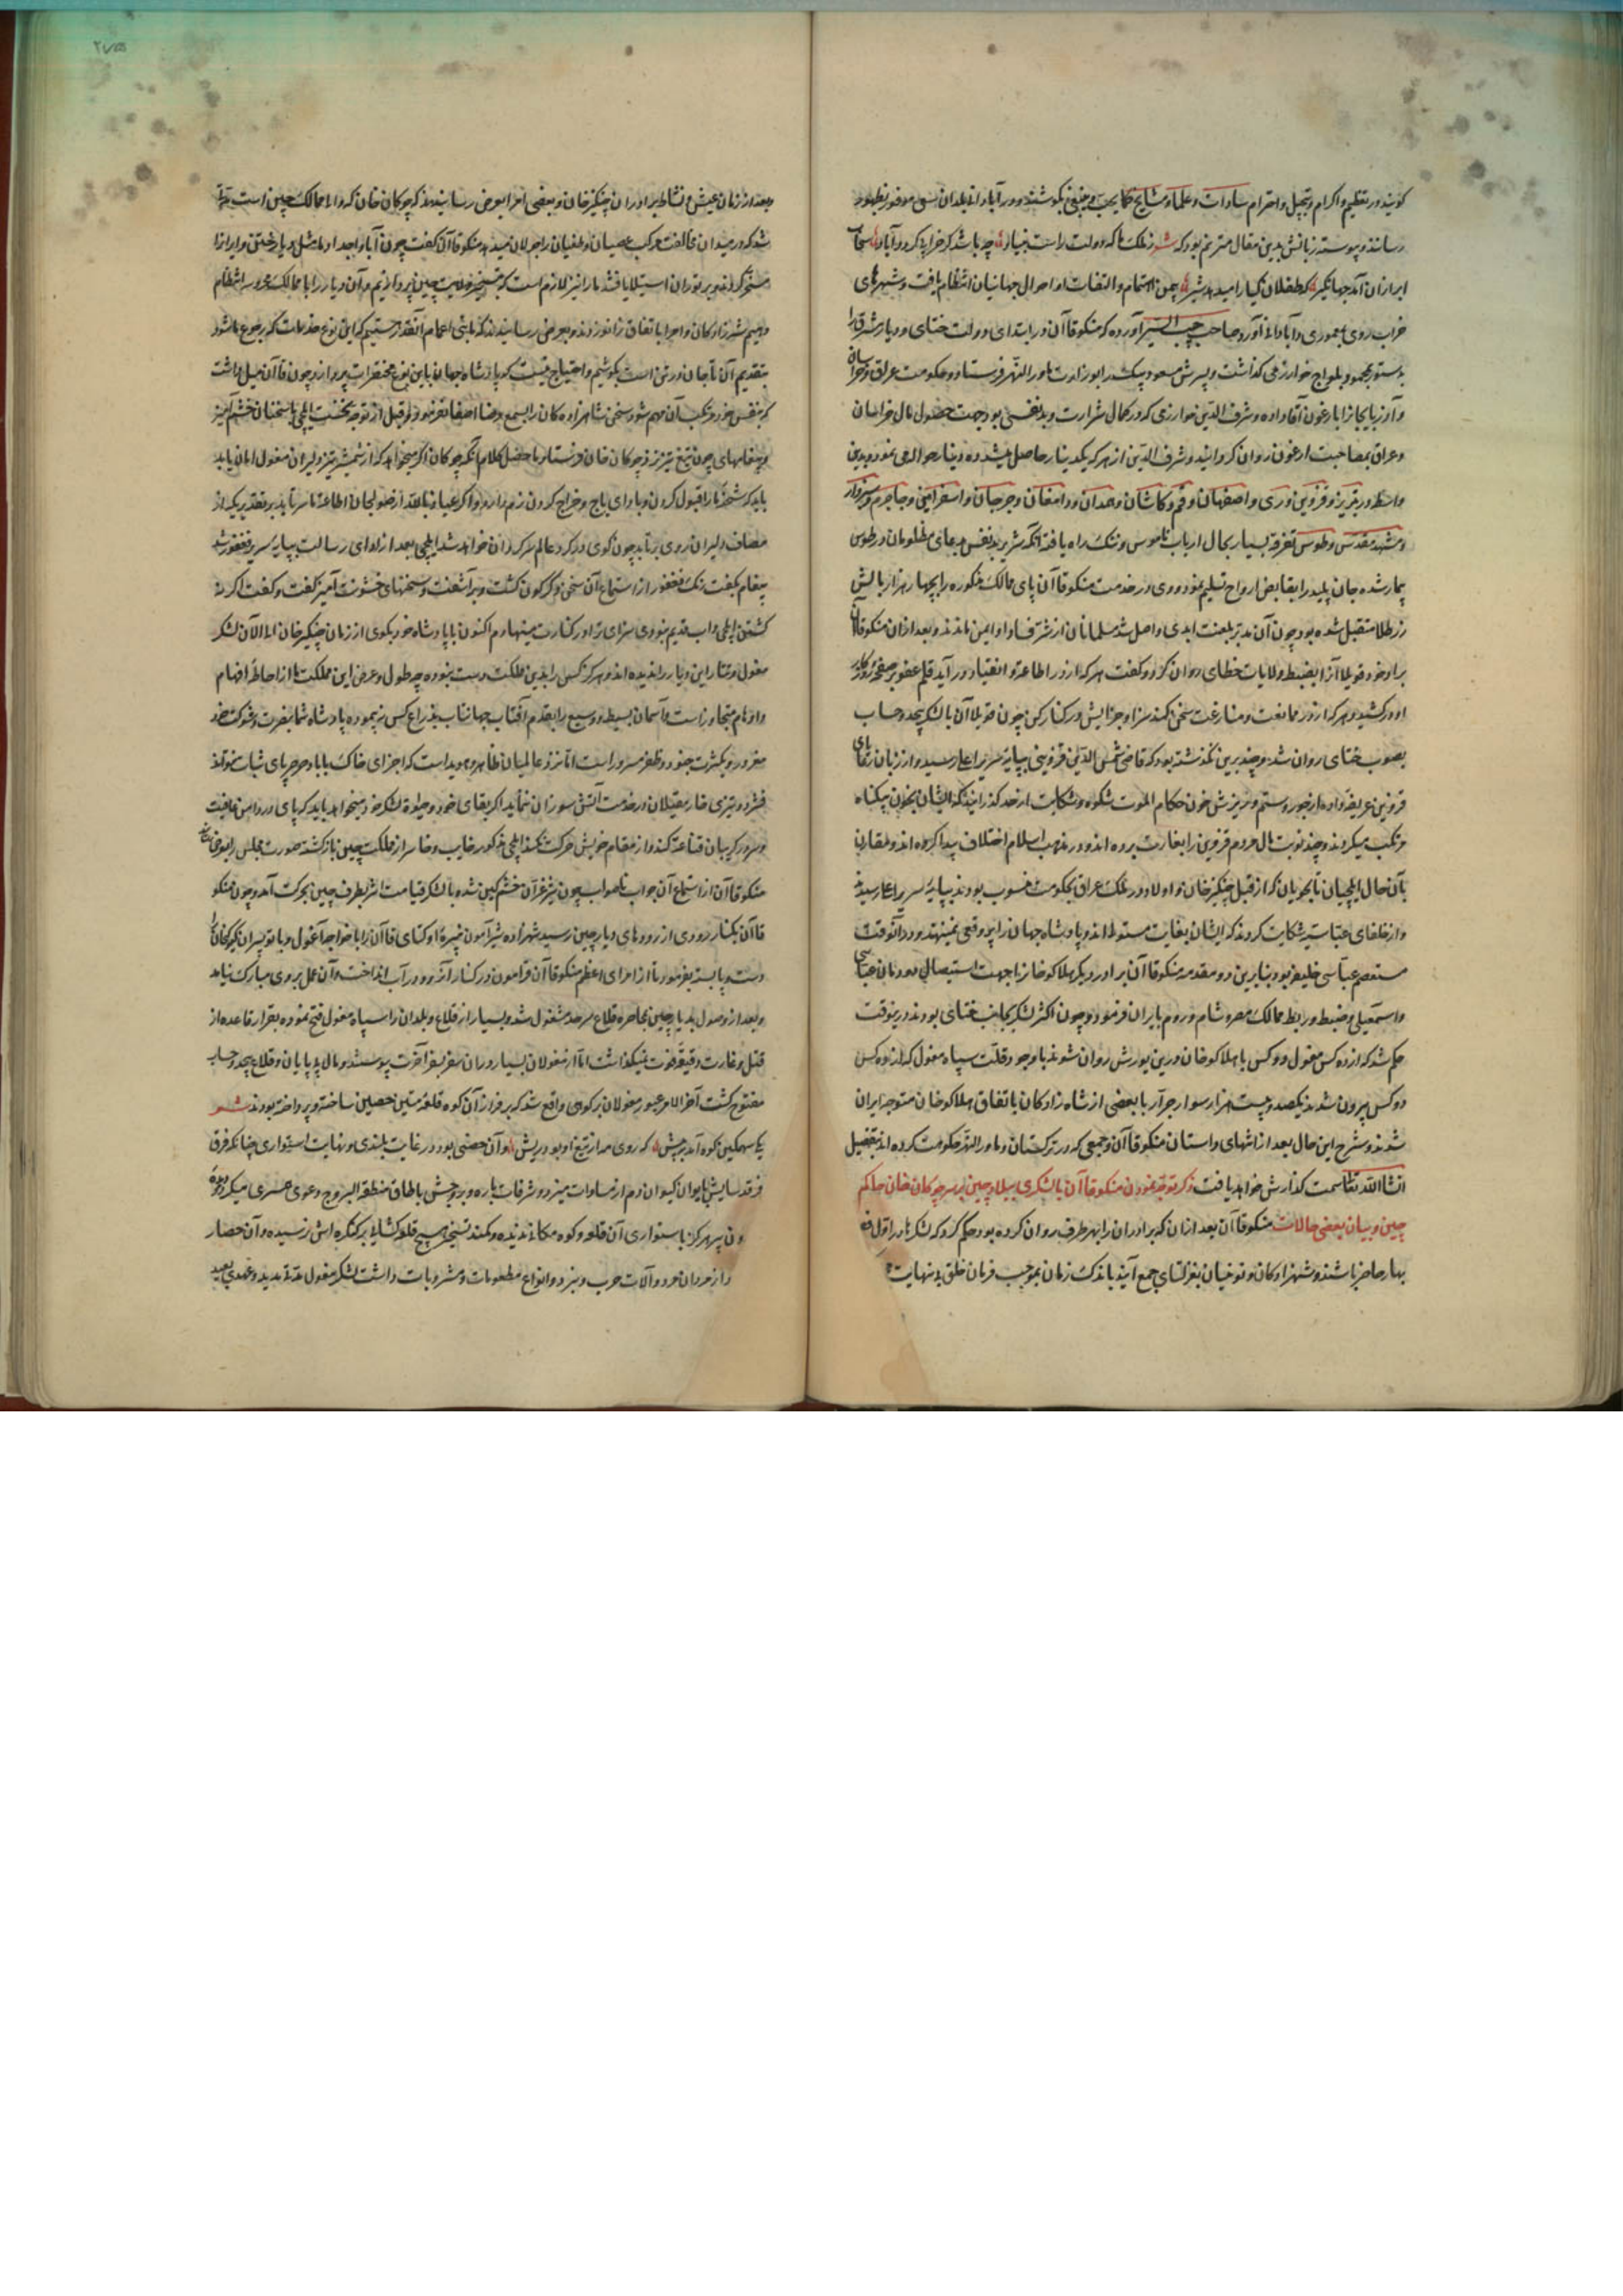 کوشند و در تعظیم و اکرام و تبجیل و احترام سادات و علما و مشایخ کما یجب و ینبغی بکوشند و در آبادانی بلدان سعی موفور بظهور
رسانند و پیوسته زبانش بدین مقال مترنم بود که شعر ز ملک که دولت راست بنیاد چه باشد کز خرابی گردد آباد سحاب
ابر ازان آمد جهانگیر که طفلان گیا را میدهد شیر بیمن اهتمام و التفات او احوال جهانیان انتظام یافت و شهرهای
خراب روی بمعموری و آبادانی آورد و صاحب حبیب السیر آورده که منکوقاآن در ابتدای دولت ختای و دیار شرق را
بدستور بمحمود یلواج خوارزمی گذاشت و پسرش مسعود بیک را بوزارت ماوراالنهر فرستاد و حکومت عراق و خراسان
و آذربایجان را بارغون آقا داده و شرف الدین خوارزمی که در کمال شرارت و بدنفسی بود جهت حصول مال خراسان
و عراق بمصاحبت ارغون روان گردانید و شرف الدین از هر که یکدینار حاصل میشد ده دینار حواله می نمود و بدین
واسطه در تبریز و قزوین و ری و اصفهان و قم و کاشان و همدان و دامغان و جرجان و اسفراین و جاجرم و سبزوار
و مشهد مقدس و طوس تفرقه بسیار بحال ارباب ناموس و ننگ راه یافته آنکه شریر بدنفس بدعای مظلومان در طوس
بیمار شده جان پلید را بقابض ارواح تسلیم نمود و وی در خدمت منکوقاآن پای ممالک مذکوره را بچهار هزار بالش
زر طلا متقبل شده بود چون آن مدبر بلعنت ابدی واصل شد مسلمانان از شر فساد او ایمن ماندند و بعد ازان منکوقاآن
برادر خود قوبیلا آنرا بضبط ولایات خطای روان کرد و گفت هر که از در اطاعة و انقیاد در آید قلم عفو بر صفحه روزگار
او در کشید و هر که از در ممانعت و منازعت سخن کند سزا و جزایش در کنار کن چون قوبیلاآن با لشکر بیحد و حساب
بصوب ختای روان شد و چند برین نگذشته بود که قاضی شمس الدین قزوینی بپایه سریر اعلی رسید و از زبان رعایای
قزوین عریضه داد از جور و ستم و ریزش خون حکام الموت شکوه و شکایت از حد گذرانید که ایشان بخون بیگناه
مرتکب میگردند و چند نوبت مال مردم قزوین را بغارت برده اند و در مذهب اسلام اختلاف پیدا کرده اند و مقارن
بآن حال ایلچیان تایجویان که از قبل چنگیز خان و اولاد در ملک عراق بحکومت منسوب بودند بپایه سریر اعلی رسیدند
و از خلفای عباسیه شکایت کردند که ایشان بغایت مستولی اند و پادشاه جهان را بر وقعی نمینهند و در آنوقت
مستعصم عباسی خلیفه بود بنابرین دو مقدمه منکوقاآن برادر دیگر هلاکو خان را جهت استیصال دودمان عباسی
و اسمعیلی و ضبط و ربط ممالک مصر و شام و روم بایران فرمود و چون اکثر لشکر بجانب ختای بودند درینوقت
حکم شد که از ده کس مغول دو کس با هلاکو خان درین یورش روان شوند باوجود قلت سپاه مغول که از ده کس
دو کس بیرون شدند یکصد و بیست هزار سوار جرار با بعضی از شاه زادگان باتفاق هلاکو خان متوجه ایران
شوند و شرح این حال بعد از انتهای داستان منکوقاآن و جمعی که در ترکستان و ماورالنهر حکومت کرده اند بتفصیل
انشاالله تعالی سمت گذارش خواهد یافت ذکر توجه نمودن منکوقاآن با لشکری ببلاد چین بر سر چوکان خان حاکم
چین و بیان بعضی حالات منکوقاآن بعد ازان که برادران را بهر طرف روان کرده بود حکم کرد که لشکرها در اول
بهار حاضر باشند و شهزادگان و نوئینان بقرلتای جمع آیند باندک زمان بموجب فرمان خلق بینهایت
و بعد از زمان عیش و نشاط برادران چنگیز خان و بعضی امرا بعرض رسانیدند که چوکان خان که والی ممالک چین است
شد که در میدان مخالفت مرکب عصیان و طغیان را جولان میدهد منکوقاآن گفت چون آبا و اجداد ما مثل دیار ختن و ایران را
مسخر کردند و بر توران استیلا یافتند ما را نیز لازم است که بتسخیر ولایت چین پردازیم و آن دیار را با ممالک محروسه انتظام
دهیم شهزادگان و امرا باتفاق زانو زدند و بعرض رسانیدند که بنی اعمام آنقدر هستیم که این نوع خدمات که رجوع ما شود
بتقدیم آن تا جان در تن است بکوشیم و احتیاج نیست که پادشاه جهان باین نوع مختصرات پردازد چون قاآن میل داشت
که بنفس خود مرتکب آن مهم شود سخن شاهزاده گان را بسمع رضا اصغا نفرمود و قبل از توجه نخست ایلچی با سخنان خشم آمیز
و پیغامهای چون تیغ تیز نزد چوکان خان فرستاد ماحصل کلام آنکه چوکان اگر میخواهد که از شمشیر تیز دلیران مغول امان یابد
باید که شحنه ما را قبول کردن و باوای باج و خراج گردن نرم دارد و اگر عیاذا بالله از صولجان اطاعة ما سر تابد بر تقدیر یکه از
مصاف دلیران روی برتابد چون گوی در گرد عالم سرگردان خواهد شد ایلچی بعد از ادای رسالت بپایه سریر فغفور شد
پیغام بگفت رنگ فغفور از استماع آن سخن دگرگون گشت و برآشفت و سخنهای خشونت آمیز گفت و گفت اگر نه
کشتن ایلچی داب قدیم نبودی سزای ترا در کنارت مینهادم اکنون بپادشاه خود بگوی از زمان چنگیز خان الی الآن لشکر
مغول و تتار این دیار را ندیده اند و هرگز کس را بدین مملکت دست نبوده چه طول و عرض این مملکت ما از احاطه افهام
و اوهام متجاوز است و آسمان بسیط و وسیع را بقدم آفتاب جهانتاب بذراع کس نپیموده پادشاه شما بنصرت و شوکت خود
مغرور و بکثرت جنود و ظفر مسرور است اما نزد عالمیان ظاهر و هویداست که اجزای خاک با باد صرصر پای ثبات نتواند
فشرد و تیزی خار مغیلان در خدمت آتش سوزان ننماید اگر بقای خود و حیاوة لشکر خود میخواهد باید که پای در دامن عافیت
و سر در گریبان قناعة کشد و از مقام خویش حرکت نکند ایلچی مذکور خایب و خاسر از مملکت چین بازگشته صورت مجلس را بعرض
منکوقاآن از استماع آن جواب ناصواب چون شیر غران خشمگین شده با لشکر قیامت اثر بطرف چین بحرکت آمد و چون منکو
قاآن بکنار رودی از رودهای دیار چین رسید شهزاده شیرامون نبیره اوکتای قاآن را با خواجه آغول و یا نو پسران کیوک خان را
دست و پا بسته بفرمود تا از امرای اعظم منکوقاآن قرامون در کنار آن رود در آب انداخت و آن عمل بر وی مبارک نیامد
و بعد از وصول بدیار چین بمحاصره قلاع سرحد مشغول شد و بسیار از قلاع و بلدان را سپاه مغول فتح نموده بقرار قاعده از
قتل و غارت دقیقه فوت نمیگذاشت اما از مغولان بسیار دران سفر بسفر آخرت پیوستند و مال بی پایان و قلاع بیحد و حساب
مفتوح گشت آخر الامر عبور مغولان بر کوهی واقع شد که بر فراز آن کوه قلعه متین حصین ساخته و پرداخته بودند شعر
یکی سهمگین کوه آمد به پیش که روی مه از تیغ او بود ریش و آن حصنی بود در غایت بلندی و نهایت استواری چنانکه فرق
فرقدسایش بایوان کیوان دم از مساوات میزد و شرفات باره و بروجش با طاق منطقة البروج دعوی همسری میکرد
پیر هرگز باستواری آن قلعه و کوه مکانی ندیده و کمند تسخیر هیچ قلعه کشایی بر کنگره اش نرسیده و آن حصار
از مردان مرد و آلات حرب و نبرد و انواع مطعومات و مشروبات داشت لشکر مغول مدت مدید و عهدی بعید